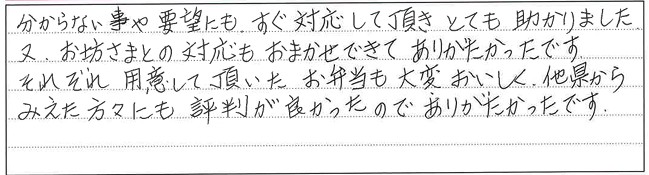 分からない事や要望にも、すぐ対応して頂きとても助かりました。
又、お坊さまとの対応もおまかせできてありがたかったです
それぞれ用意して頂いたお弁当も大変おいしく、他県から
みえた方々にも評判が良かったのでありがたかったです。